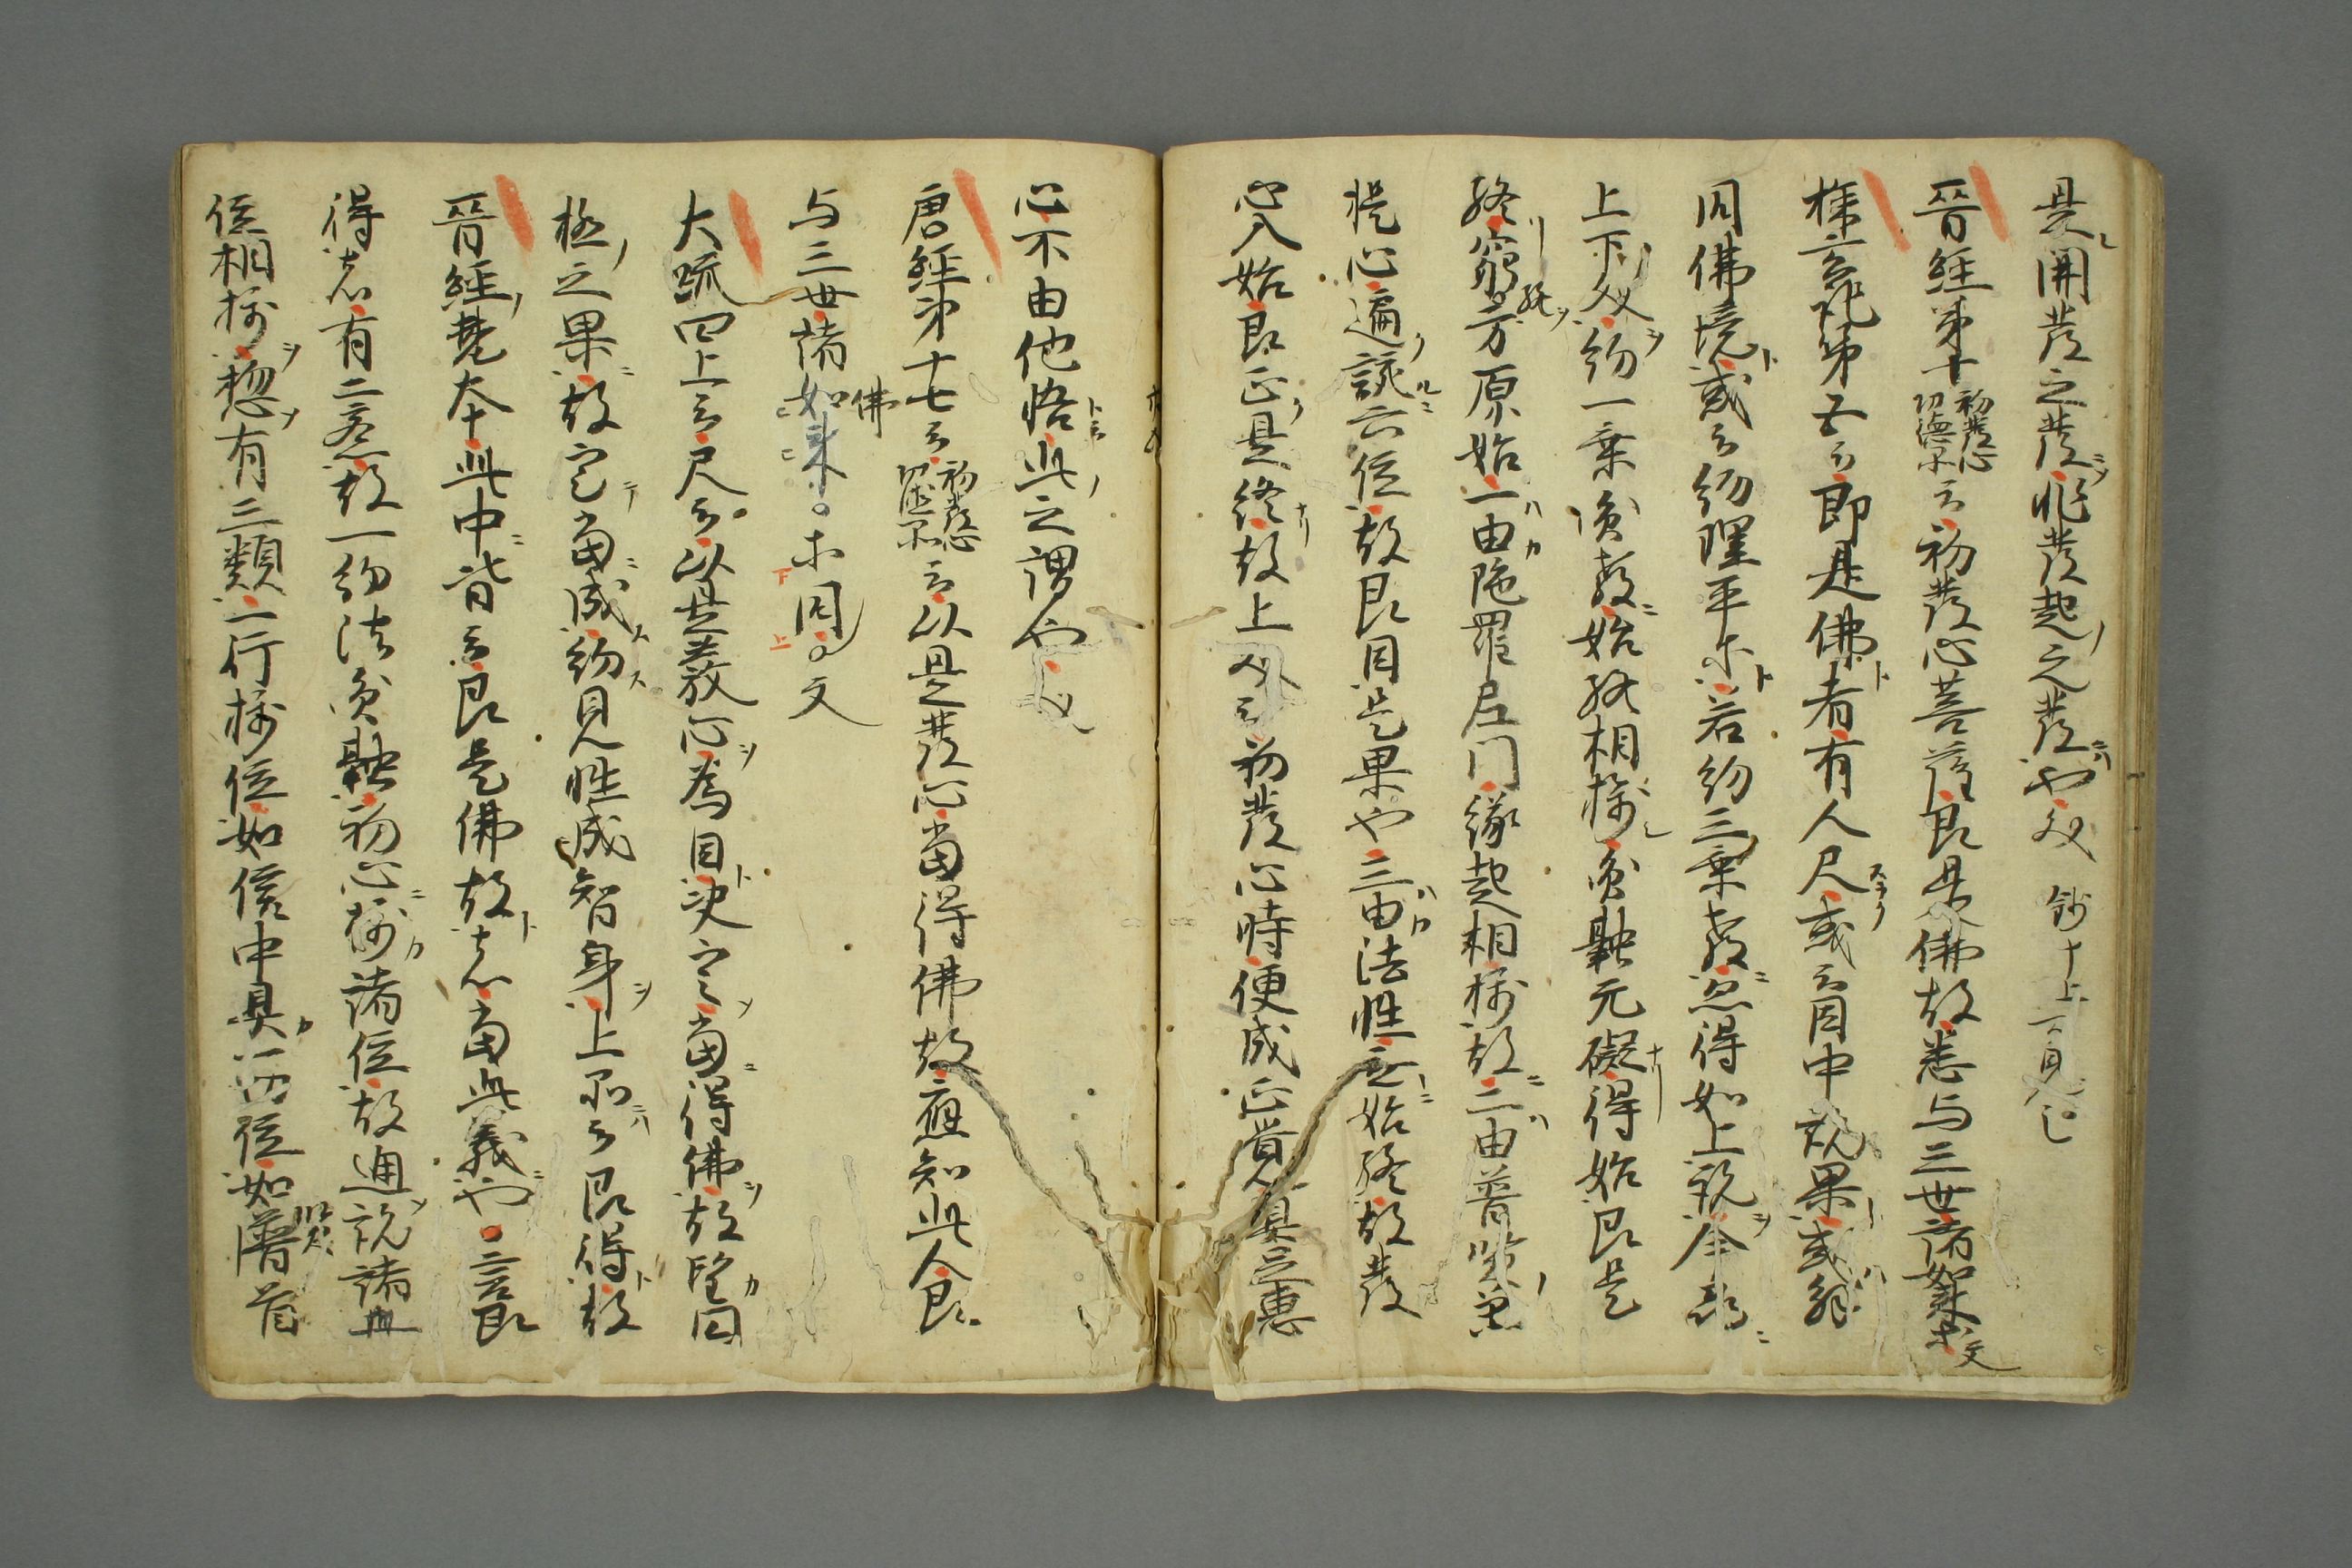 是開發之發非發起之發也文 鈔十上
晉經第十初發心功德品云初發心菩薩即是佛故悉与三世諸如來等文
探玄記第五云即是佛者有人尺或云因中說果或解
同佛境或云約理平等若約三乘教忽得如上說今就
上下文約一乘圓教始終相攝圓融无礙得始即是
終窮終方原始一由陀羅尼門緣起相攝故二由普賢菩
提心遍該六位故即因是果也三由法性无始終故發
心入始即正是終故上文云初發心時便成正覺具足惠
心不由他悟此之謂也文
唐經第十七云初發心功德品云以是發心當得佛故應知此人即
与三世諸佛如來等同文
大疏四上云尺云以是義心為因決定當得佛故望因
極之果故定當成約見性成智身上品云即得故
晉經梵本此中皆云即是佛故者當此義也言即
得者有二意故一約法圓融初心攝諸位故通說諸
位相攝惣有三類一行攝位如信中具一切位如賢首